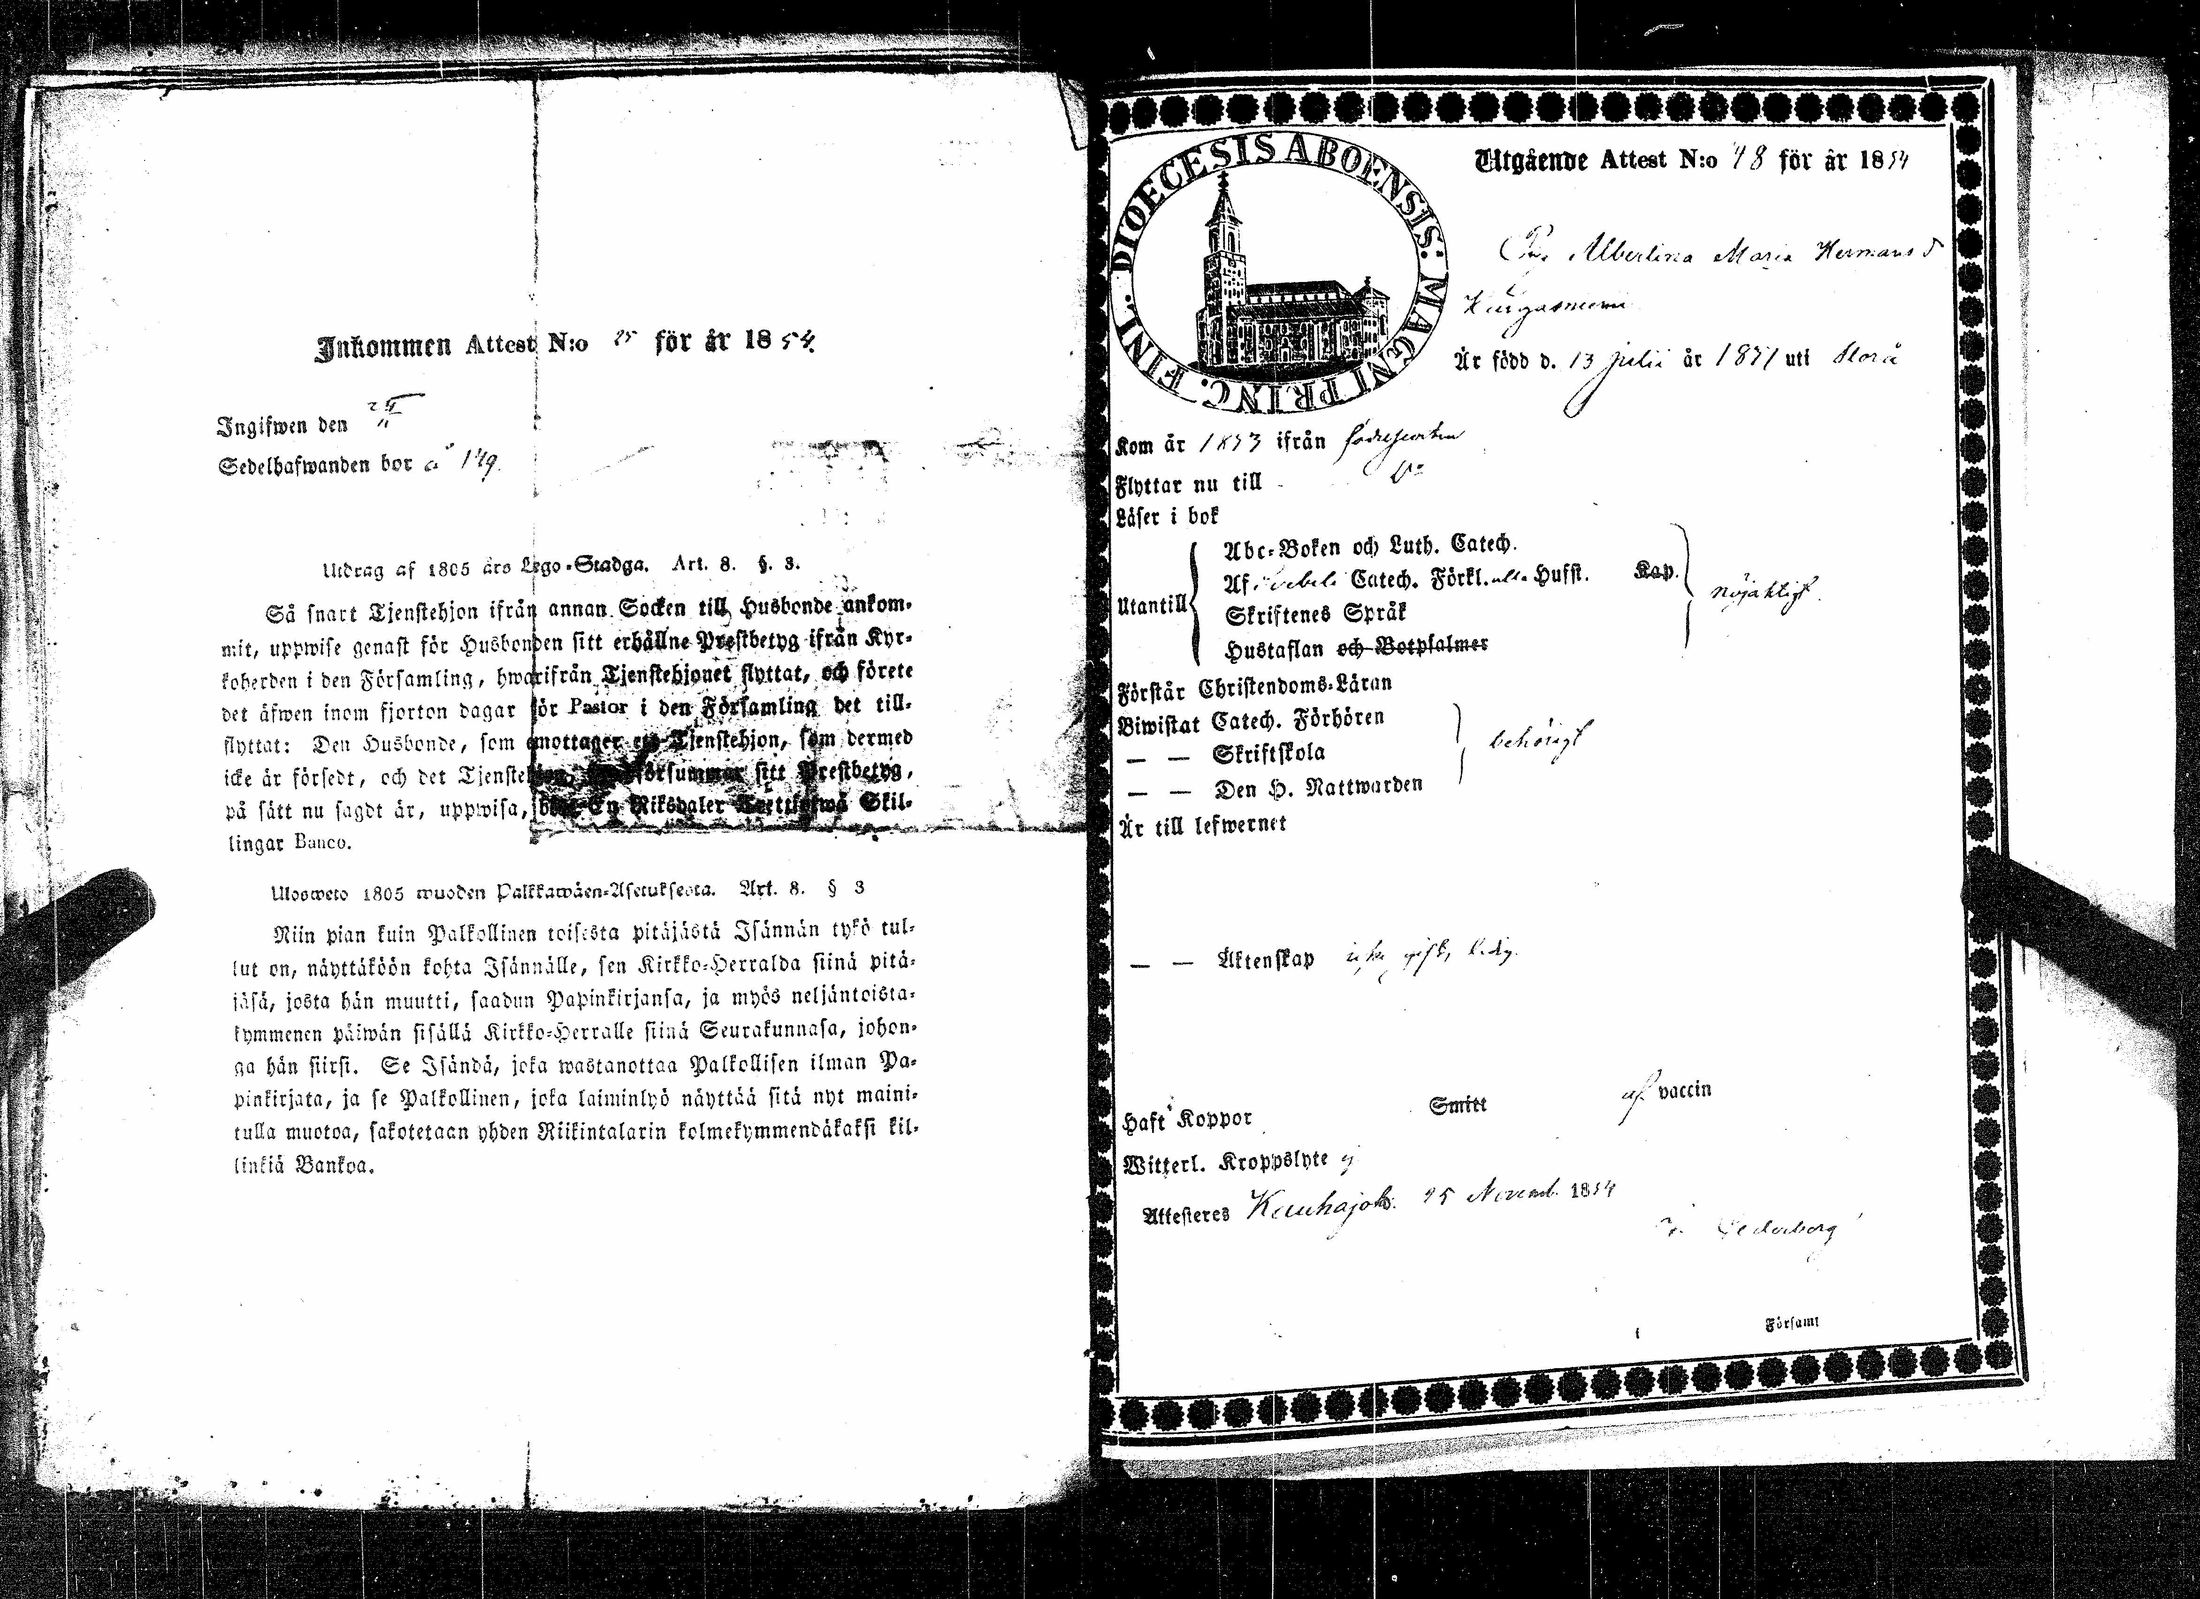 Inkommen Attest N:o 25 för år 1854.
Ingifwen den
Sedelhafwanden bor å 149.
Utdrag af 1805 års Lego-Stadga. Art. 8. §. 3.
Så snart Tjenstehjon ifrån annan Socken till Husbonde ankom-
mit, uppwise genast för Husbonden sitt erhållne Prestbetyg ifrån Kyr-
koherden i den Församling, hwarifrån Tjenstehjonet flyttat, och förete
det äfwen inom fjorton dagar för Pastor i den Församling det till-
flyttat: Den Husbonde, som emottager ett Tjenstehjon, som dermed
icke är försedt, och det Tjenstehjon, försummar sitt Prestbetyg,
på sätt nu sagdt är, uppwisa, böte En Riksdaler Trettiotwå Skil-
lingar Banco.
Ulosweto 1805 wuoden Palkkawäen-Asetuksesta. Art. 8. § 3
Niin pian kuin Palkollinen toisesta pitäjästä Isännän tykö tul-
lut on, näyttäköön kohta Isännälle, sen Kirkko-Herralda siinä pitä-
jäsä, josta hän muutti, saadun Papinkirjansa, ja myös neljäntoista-
kymmenen päiwän sisällä Kirkko-Herralle siinä Seurakunnasa, johon-
ga hän siirsi. Se Isändä, joka wastanottaa Palkollisen ilman Pa-
pinkirjata, ja se Palkollinen, joka laiminlyö näyttää sitä nyt maini-
tulla muotoa, sakotetaan yhden Riikintalarin kolmekymmendäkaksi kil-
linkiä Bankoa.
DIOECESIS ABOENSIS: MAGNI PRINC. FINL.
Utgående Attest N:o 48 för år 1854
Pig. Albertina Maria Hermansd
Är född d. 13 julii år 1831 uti Storå
Kom år 1853 ifrån födelseorten
Flyttar nu till Do
Läser i bok
Utantill
Abc-Boken och Luth. Catech.
Af Svebeli Catech. Förkl. alla Husst. Kap.
Skriftenes Språk
Hustaflan och Botpsalmer
nöjaktigt.
Förstår Christendoms-Läran
Biwistat Catech. Förhören
— — Skriftskola
— — Den H. Nattwarden
behörigt
Är till lefwernet
— — Äktenskap icke gift, ledig.
Haft Koppor Smitt af vaccin
Witterl. Kroppslyte ej
Attesteres Kauhajoki 25 Novemb. 1854
Cederberg
Församl